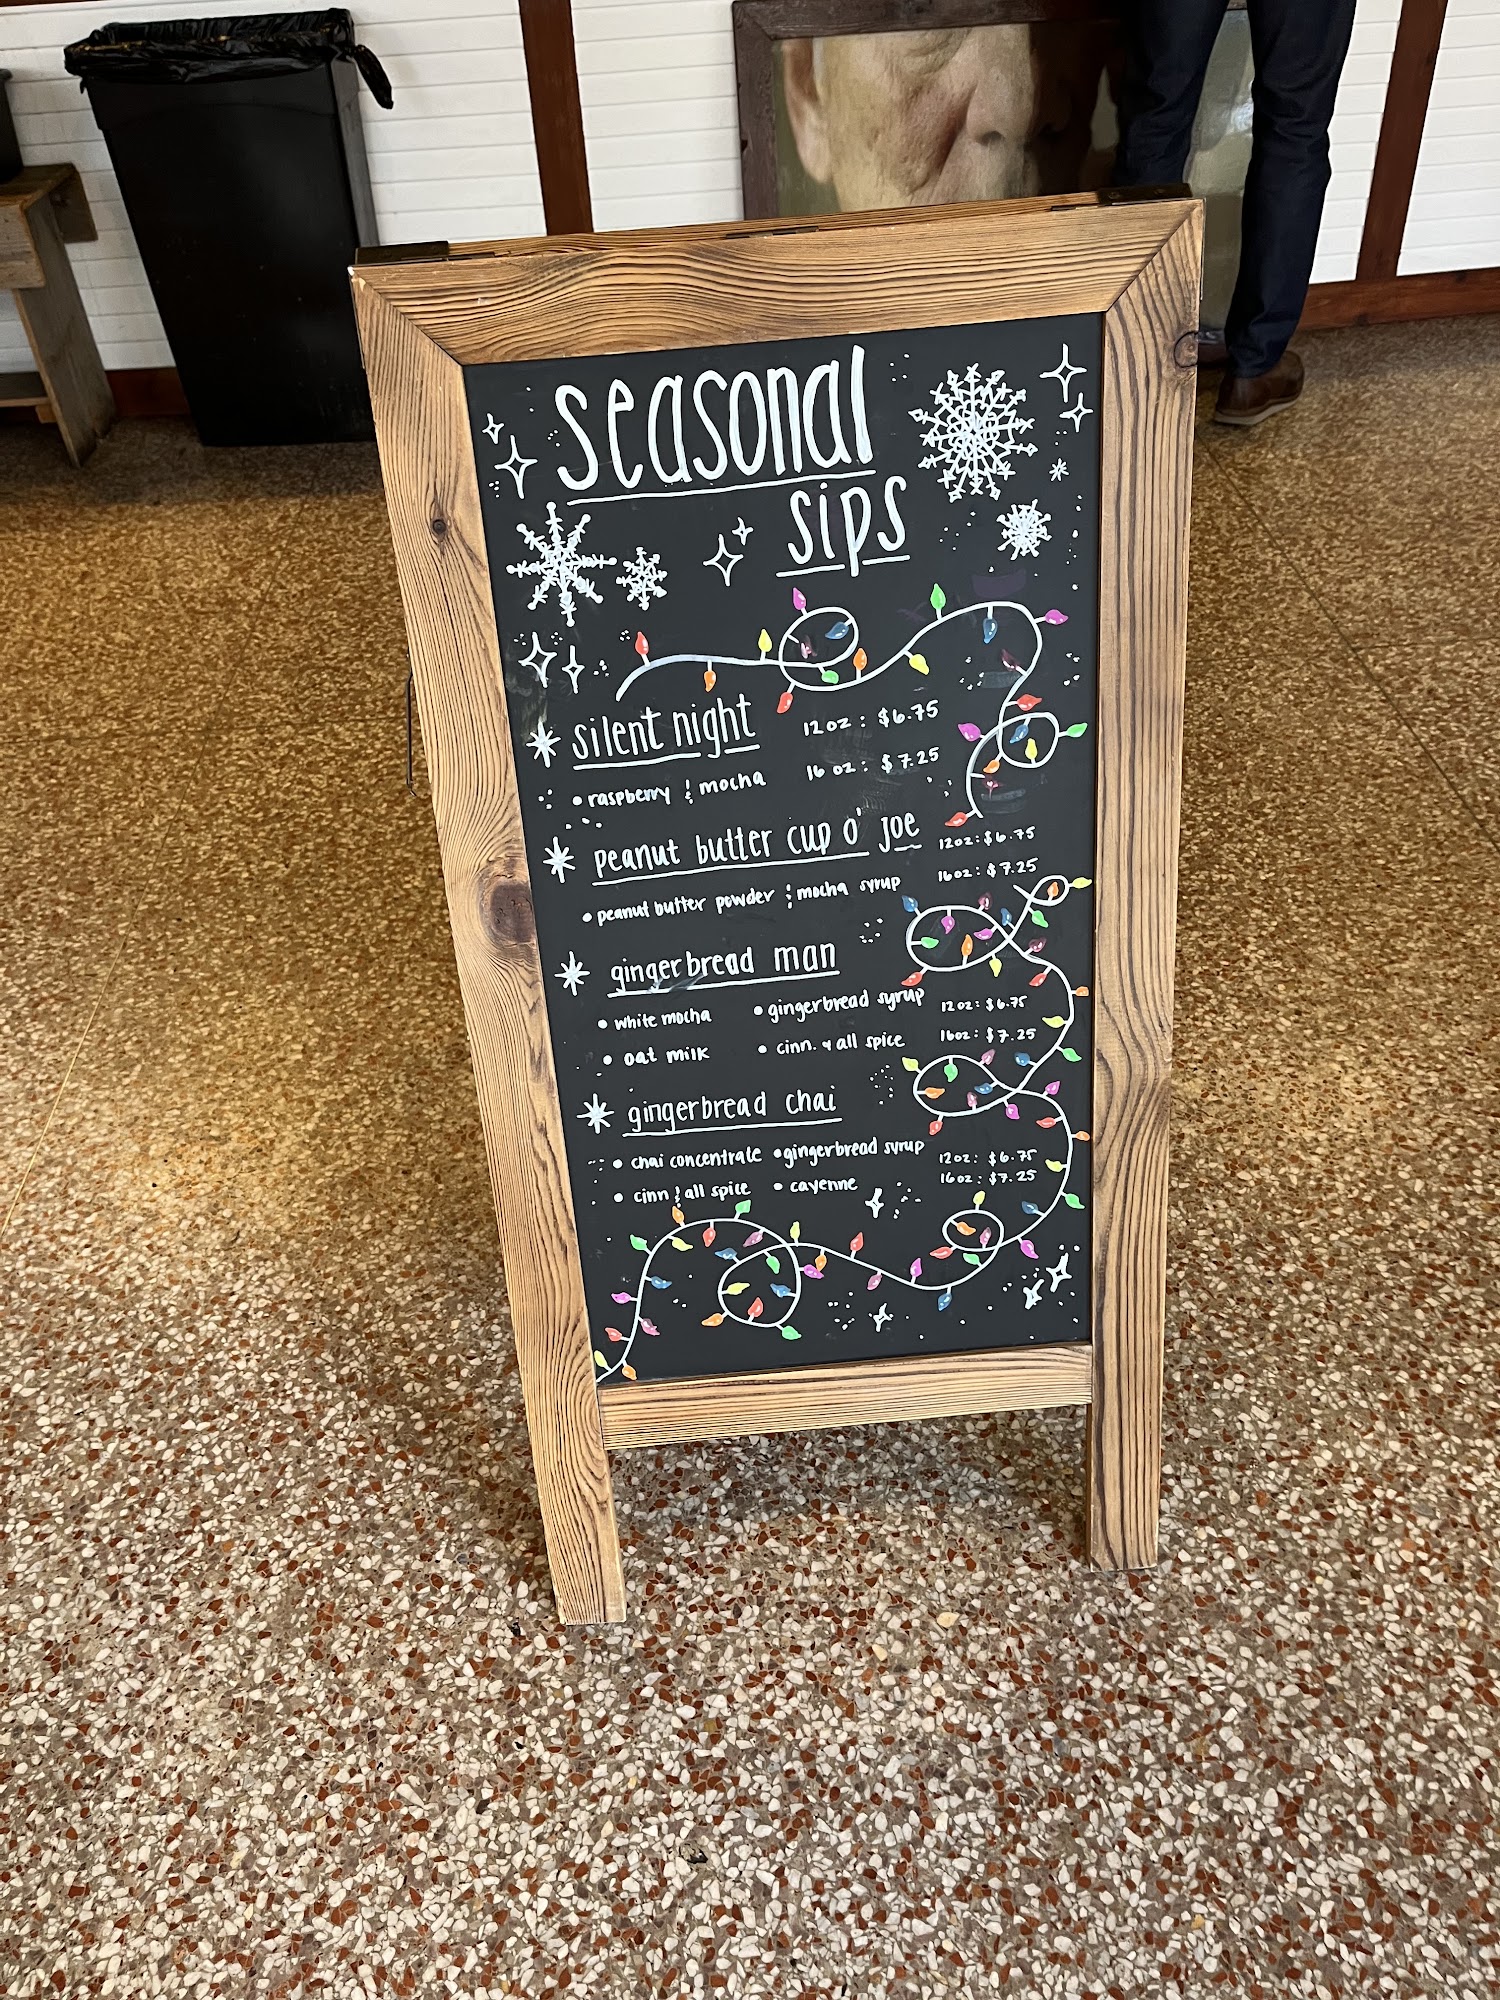 seasonal
sips
silent night 12oz: $6.75
• raspberry & mocha 16 oz: $7.25
peanut butter cup o' joe 12oz: $6.75
• peanut butter powder & mocha syrup 16oz: $7.25
gingerbread man
• white mocha • gingerbread syrup 12oz: $6.75
• oat milk • cinn. & all spice 16oz: $7.25
gingerbread chai
• chai concentrate • gingerbread syrup 12oz: $6.75
• cinn & all spice • cayenne 16oz: $7.25